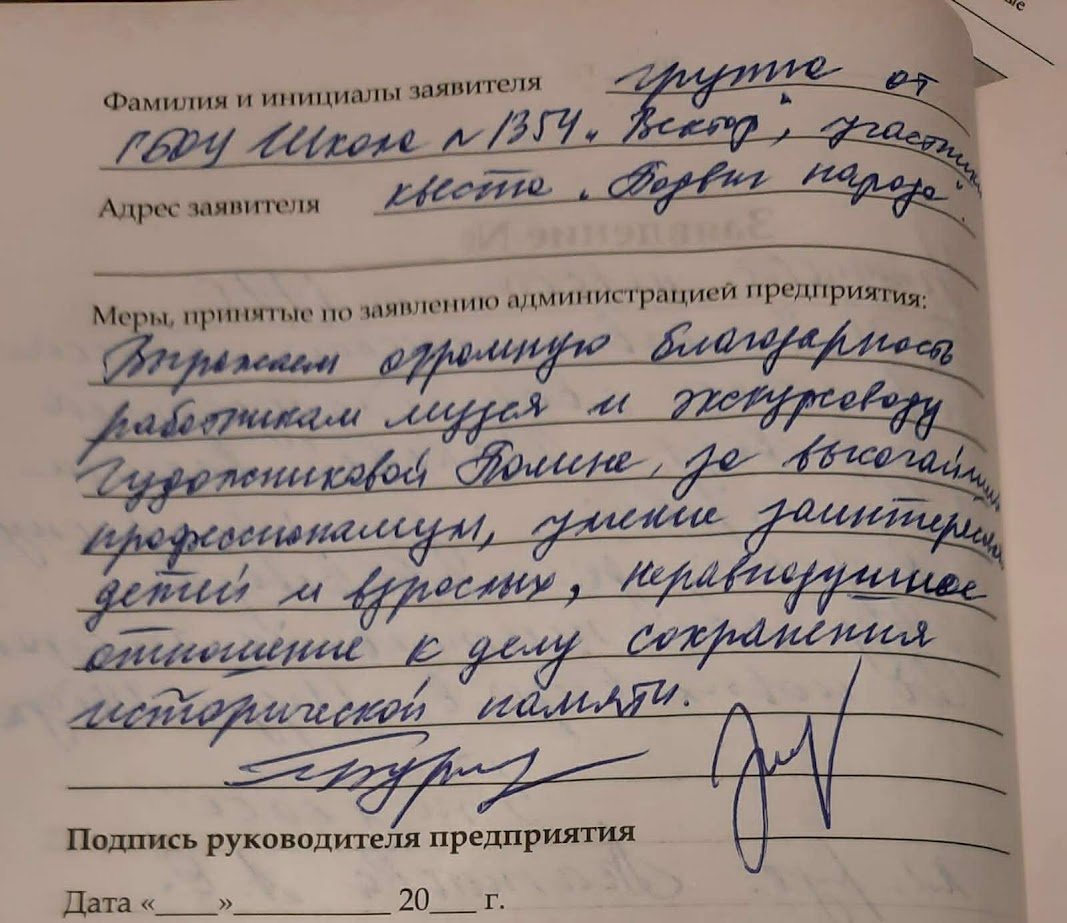 Фамилия и инициалы заявителя группа от
ГБОУ Школа N 1354 „Вектор", участники
Адрес заявителя квеста „Подвиг народа".
Заявление №
Меры, принятые по заявлению администрацией предприятия:
Выражаем огромную благодарность
работникам музея и экскурсоводу
Полине, за высочайший
профессионализм, умение заинтересовать
детей и взрослых, неравнодушное
отношение к делу сохранения
исторической памяти.
Подпись руководителя предприятия
Дата «____»____________ 20___ г.